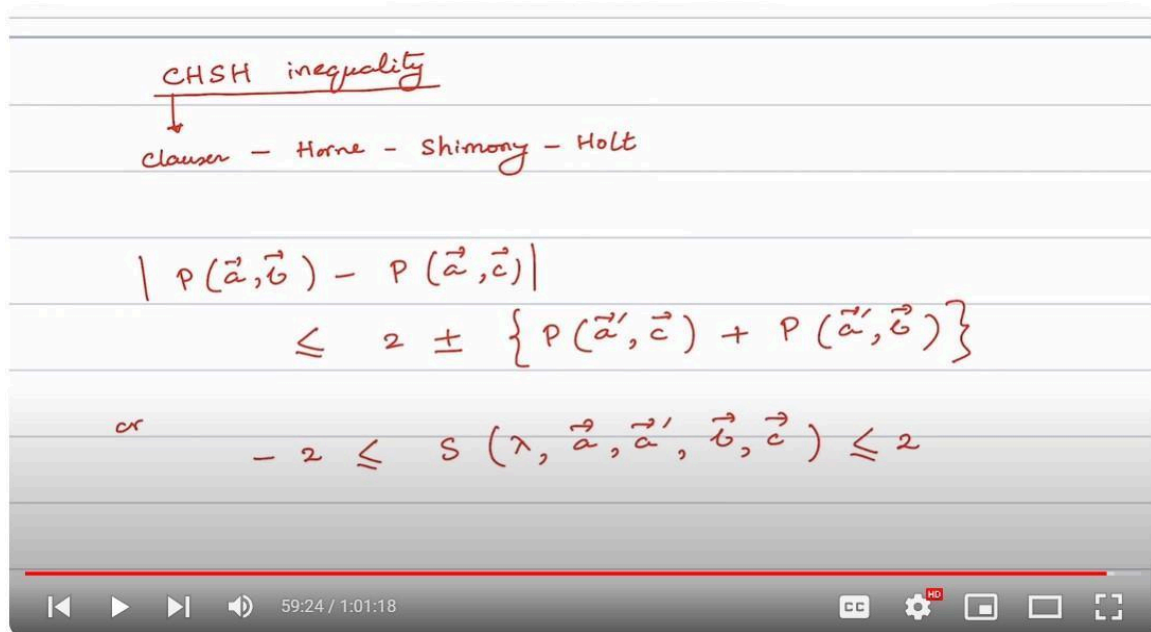 CHSH inequality
Clauser - Horne - Shimony - Holt
| P(a⃗, b⃗) - P(a⃗, c⃗)|
≤ 2 ± { P(a⃗′, c⃗) + P(a⃗′, b⃗)}
or
- 2 ≤ S (λ, a⃗, a⃗′, b⃗, c⃗) ≤ 2
59:24 / 1:01:18
CC
HD